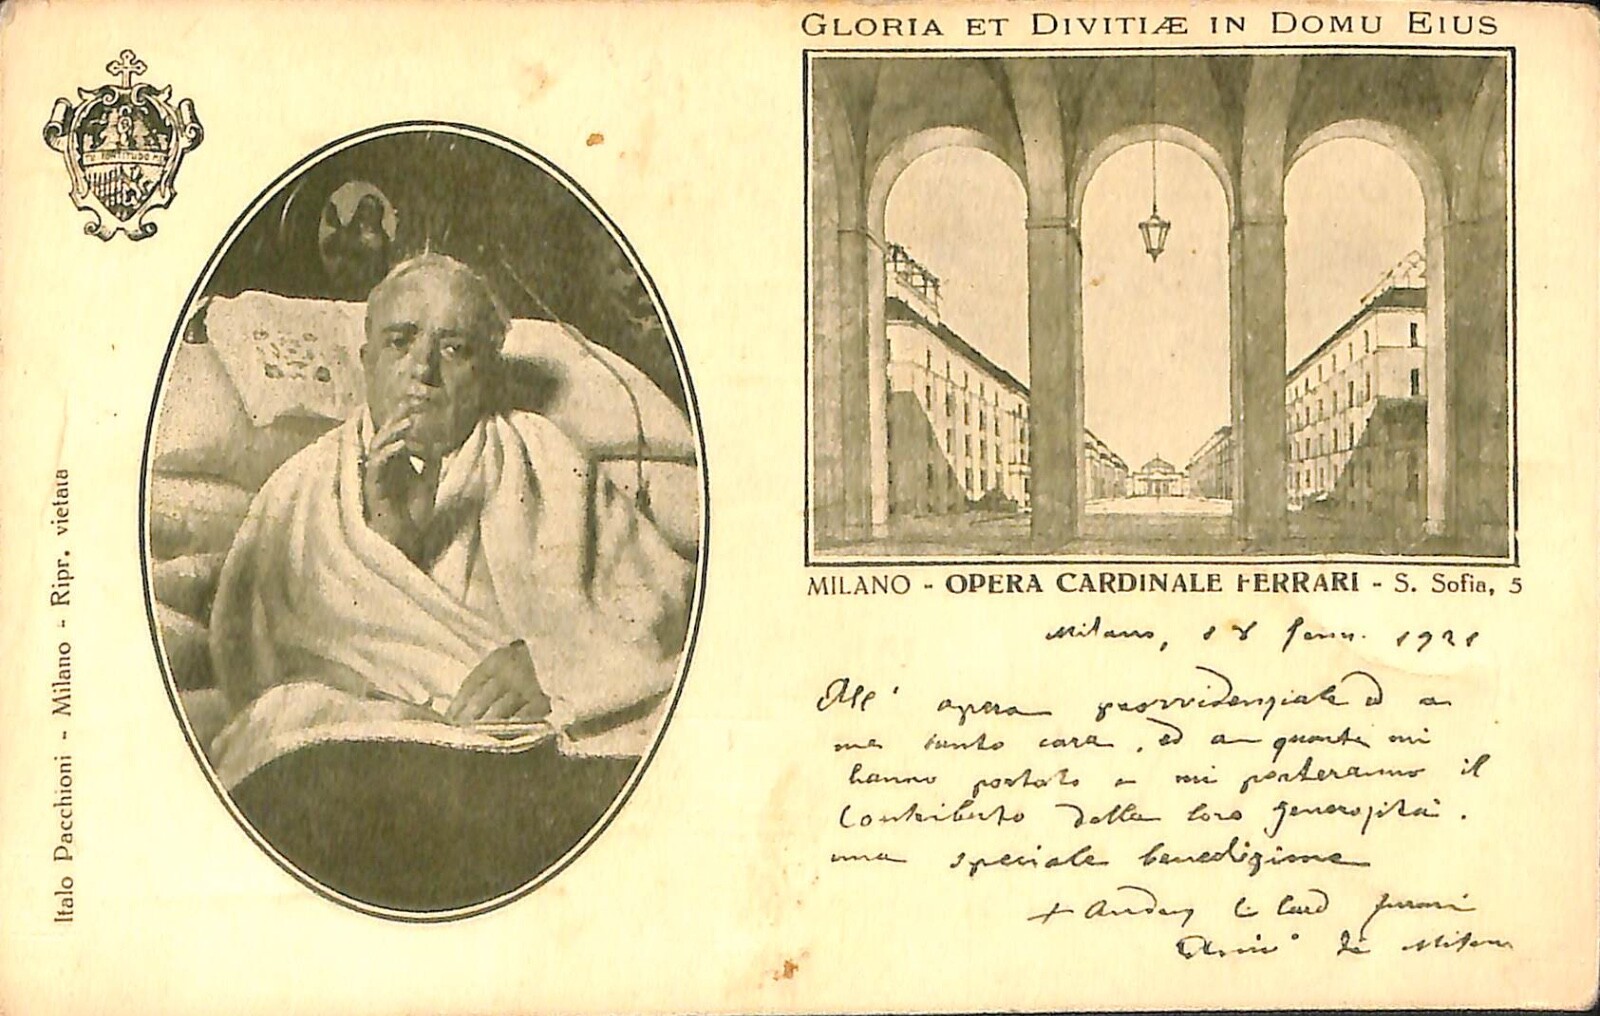 GLORIA ET DIVITIÆ IN DOMU EIUS
TU FORTITUDO MEA
Italo Pacchioni - Milano - Ripr. vietata
MILANO - OPERA CARDINALE FERRARI - S. Sofia, 5
Milano, 18 Genn. 1921
All' opera provvidenziale ed a
me tanto cara, ed a quanti mi
hanno portato e mi porteranno il
Contributo della loro generosità.
una speciale benedizione
+ Andrea C. Card Ferrari
Arciv° di Milano